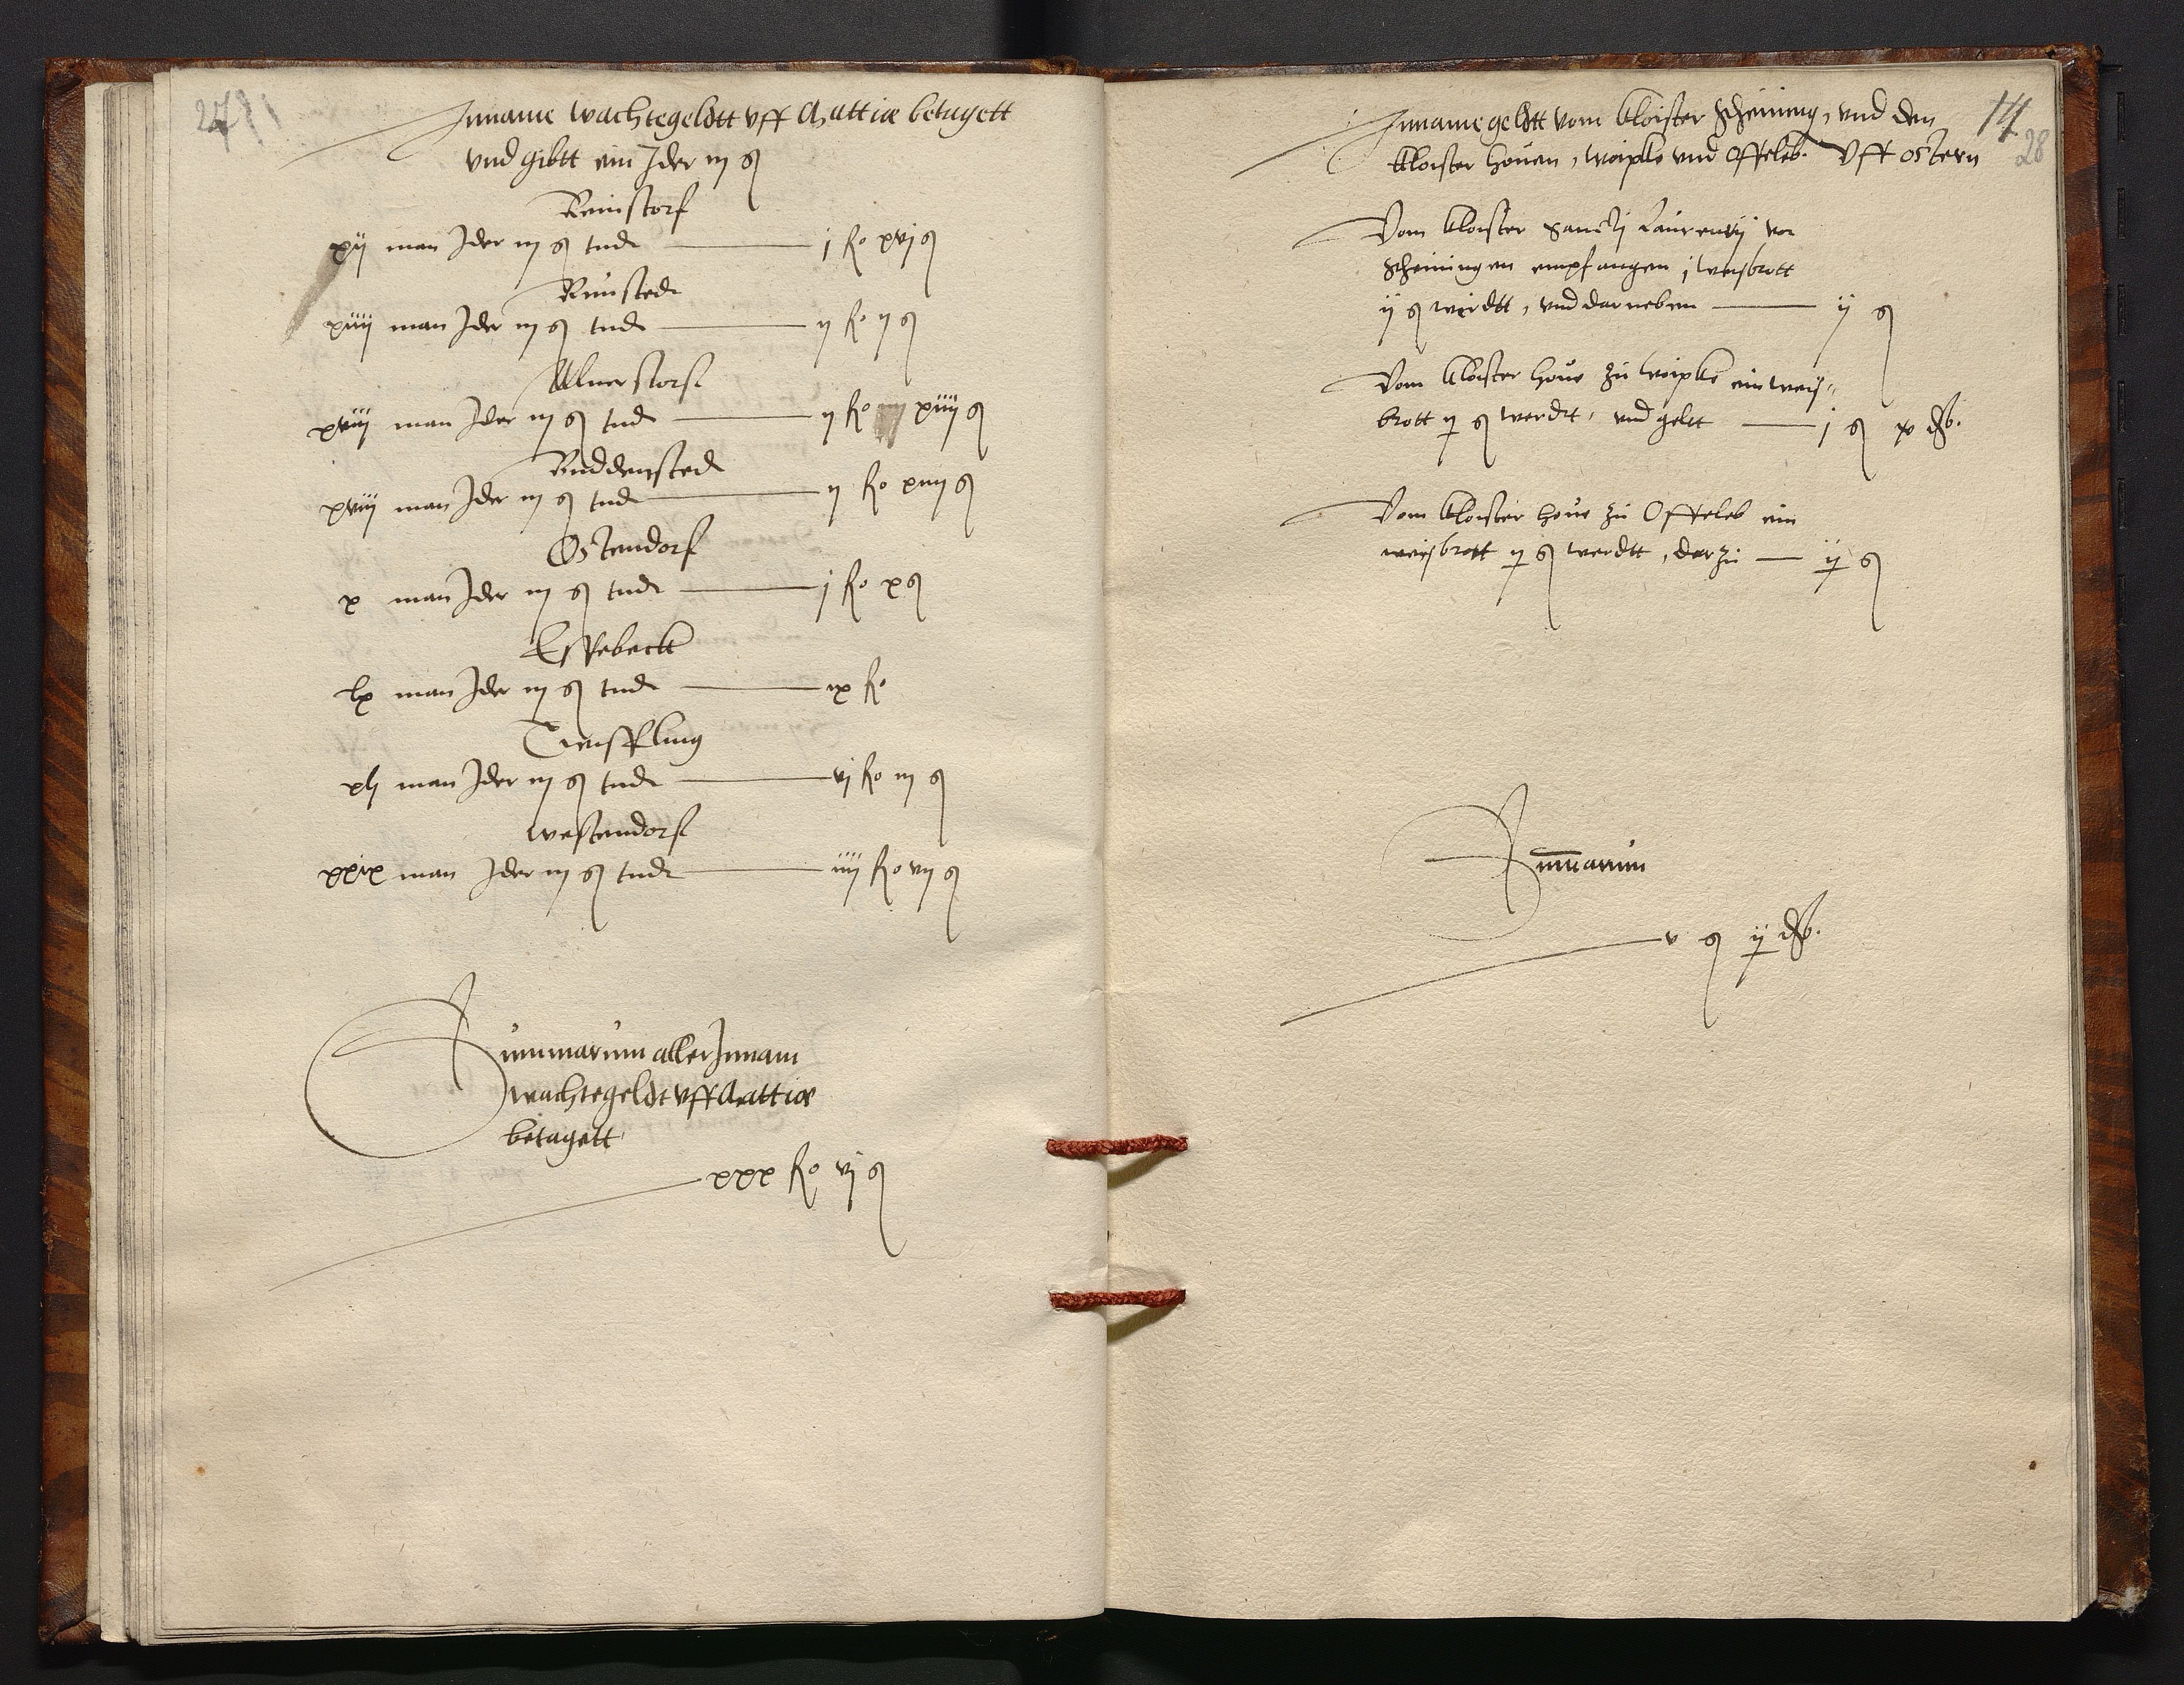 27
Inname wachtegeldtt vff Mattiæ betagett
vnd gibtt ein Jder iij gl
Reinstorf
xij man Jder iij gl tud — j fl xvj gl
Runstede
xiiij man Jder iij gl tud — ij fl ij gl
Alverstorf
xviij man Jder iij gl tud — ij fl xiiij gl
Buddenstede
xviij man Jder iij gl tud — ij fl xiiij gl
Ostendorf
x man Jder iij gl tud — j fl x gl
Esbebeck
lx man Jder iij gl tud — ix fl
Twiflling
xlj man Jder iij gl tud — vj fl iij gl
Westendorf
xxix man Jder iij gl tud — iiij fl vij gl
Summarum aller Innam
wachtegeldt vff Mattiæ
betagett
xxx fl vj gl
14
28
Inname geldtt vom kloister Scheining, vnd den
kloister houen, woipke vnd Offeleb. Vff ostern
Vom kloister Sancti Laurentij vor
Scheiningen empfangen j weisbrott
ij gl wirdtt, vnd darneben — ij gl
Vom kloister houe zu woipke ein weis„
brott ij gl werdt, vnd geltt — j gl x
Vom kloister houe zu Offeleb ein
weisbrott ij gl werdtt, darzu — ij gl
Summarum
v gl ij